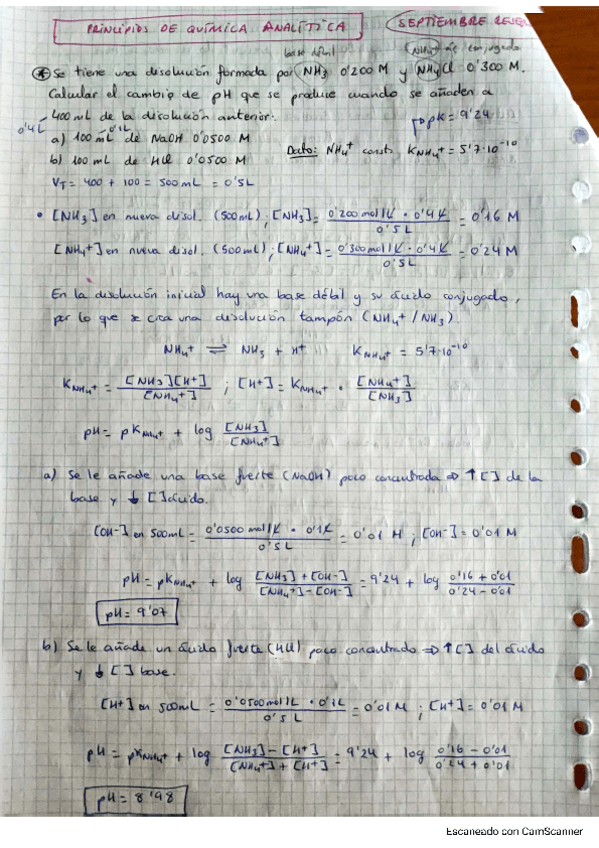 PRINCIPIOS DE QUÍMICA ANALÍTICA
SEPTIEMBRE
base débil
conjugado
* Se tiene una disolución formada por NH3 0'200 M y NH4Cl 0'300 M.
Calcular el cambio de pH que se produce cuando se añaden a
400 mL de la disolución anterior:
0'4L
pK = 9'24
0'1L
a) 100 mL de NaOH 0'0500 M
Dato: NH4+ const. KNH4+ = 5'7·10^-10
b) 100 mL de HCl 0'0500 M
VT = 400 + 100 = 500 mL = 0'5L
• [NH3] en nueva disol. (500mL); [NH3] = 0'200 mol/L · 0'4L / 0'5L = 0'16 M
[NH4+] en nueva disol. (500mL); [NH4+] = 0'300 mol/L · 0'4L / 0'5L = 0'24 M
En la disolución inicial hay una base débil y su ácido conjugado,
por lo que se crea una disolución tampón (NH4+/NH3).
NH4+ ⇌ NH3 + H+ KNH4+ = 5'7·10^-10
KNH4+ = [NH3][H+] / [NH4+] ; [H+] = KNH4+ · [NH4+] / [NH3]
pH = pKNH4+ + log [NH3] / [NH4+]
a) Se le añade una base fuerte (NaOH) poco concentrada ⇒ ↑[] de la
base y ↓[] ácido.
[OH-] en 500mL = 0'0500 mol/L · 0'1L / 0'5L = 0'01 M ; [OH-] = 0'01 M
pH = pKNH4+ + log [NH3]+[OH-] / [NH4+]-[OH-] = 9'24 + log 0'16 + 0'01 / 0'24 - 0'01
pH = 9'07
b) Se le añade un ácido fuerte (HCl) poco concentrado ⇒ ↑[] del ácido
y ↓[] base.
[H+] en 500mL = 0'0500 mol/L · 0'1L / 0'5L = 0'01 M ; [H+] = 0'01 M
pH = pKNH4+ + log [NH3]-[H+] / [NH4+]+[H+] = 9'24 + log 0'16 - 0'01 / 0'24 + 0'01
pH = 8'98
Escaneado con CamScanner